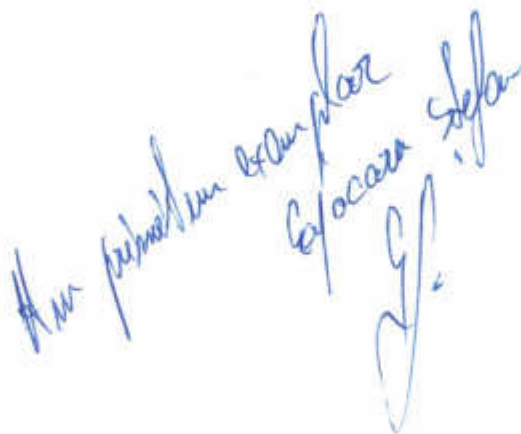 Am primit un exemplar
Cojocaru Ștefan